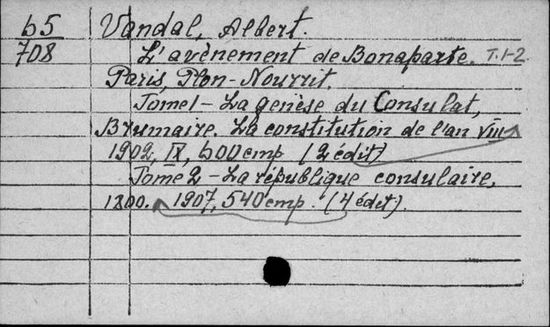 б5 Vandal, Albert.
708 L'avènement de Bonaparte. T.1-2
Paris, Plon-Nourrit.
Tome 1 - La genèse du Consulat,
Brumaire. La constitution de l'an VIII
1902, IX, 600 стр (2 édit)
Tome 2 - La république consulaire,
1800. 1907, 540 стр. (4 édit).